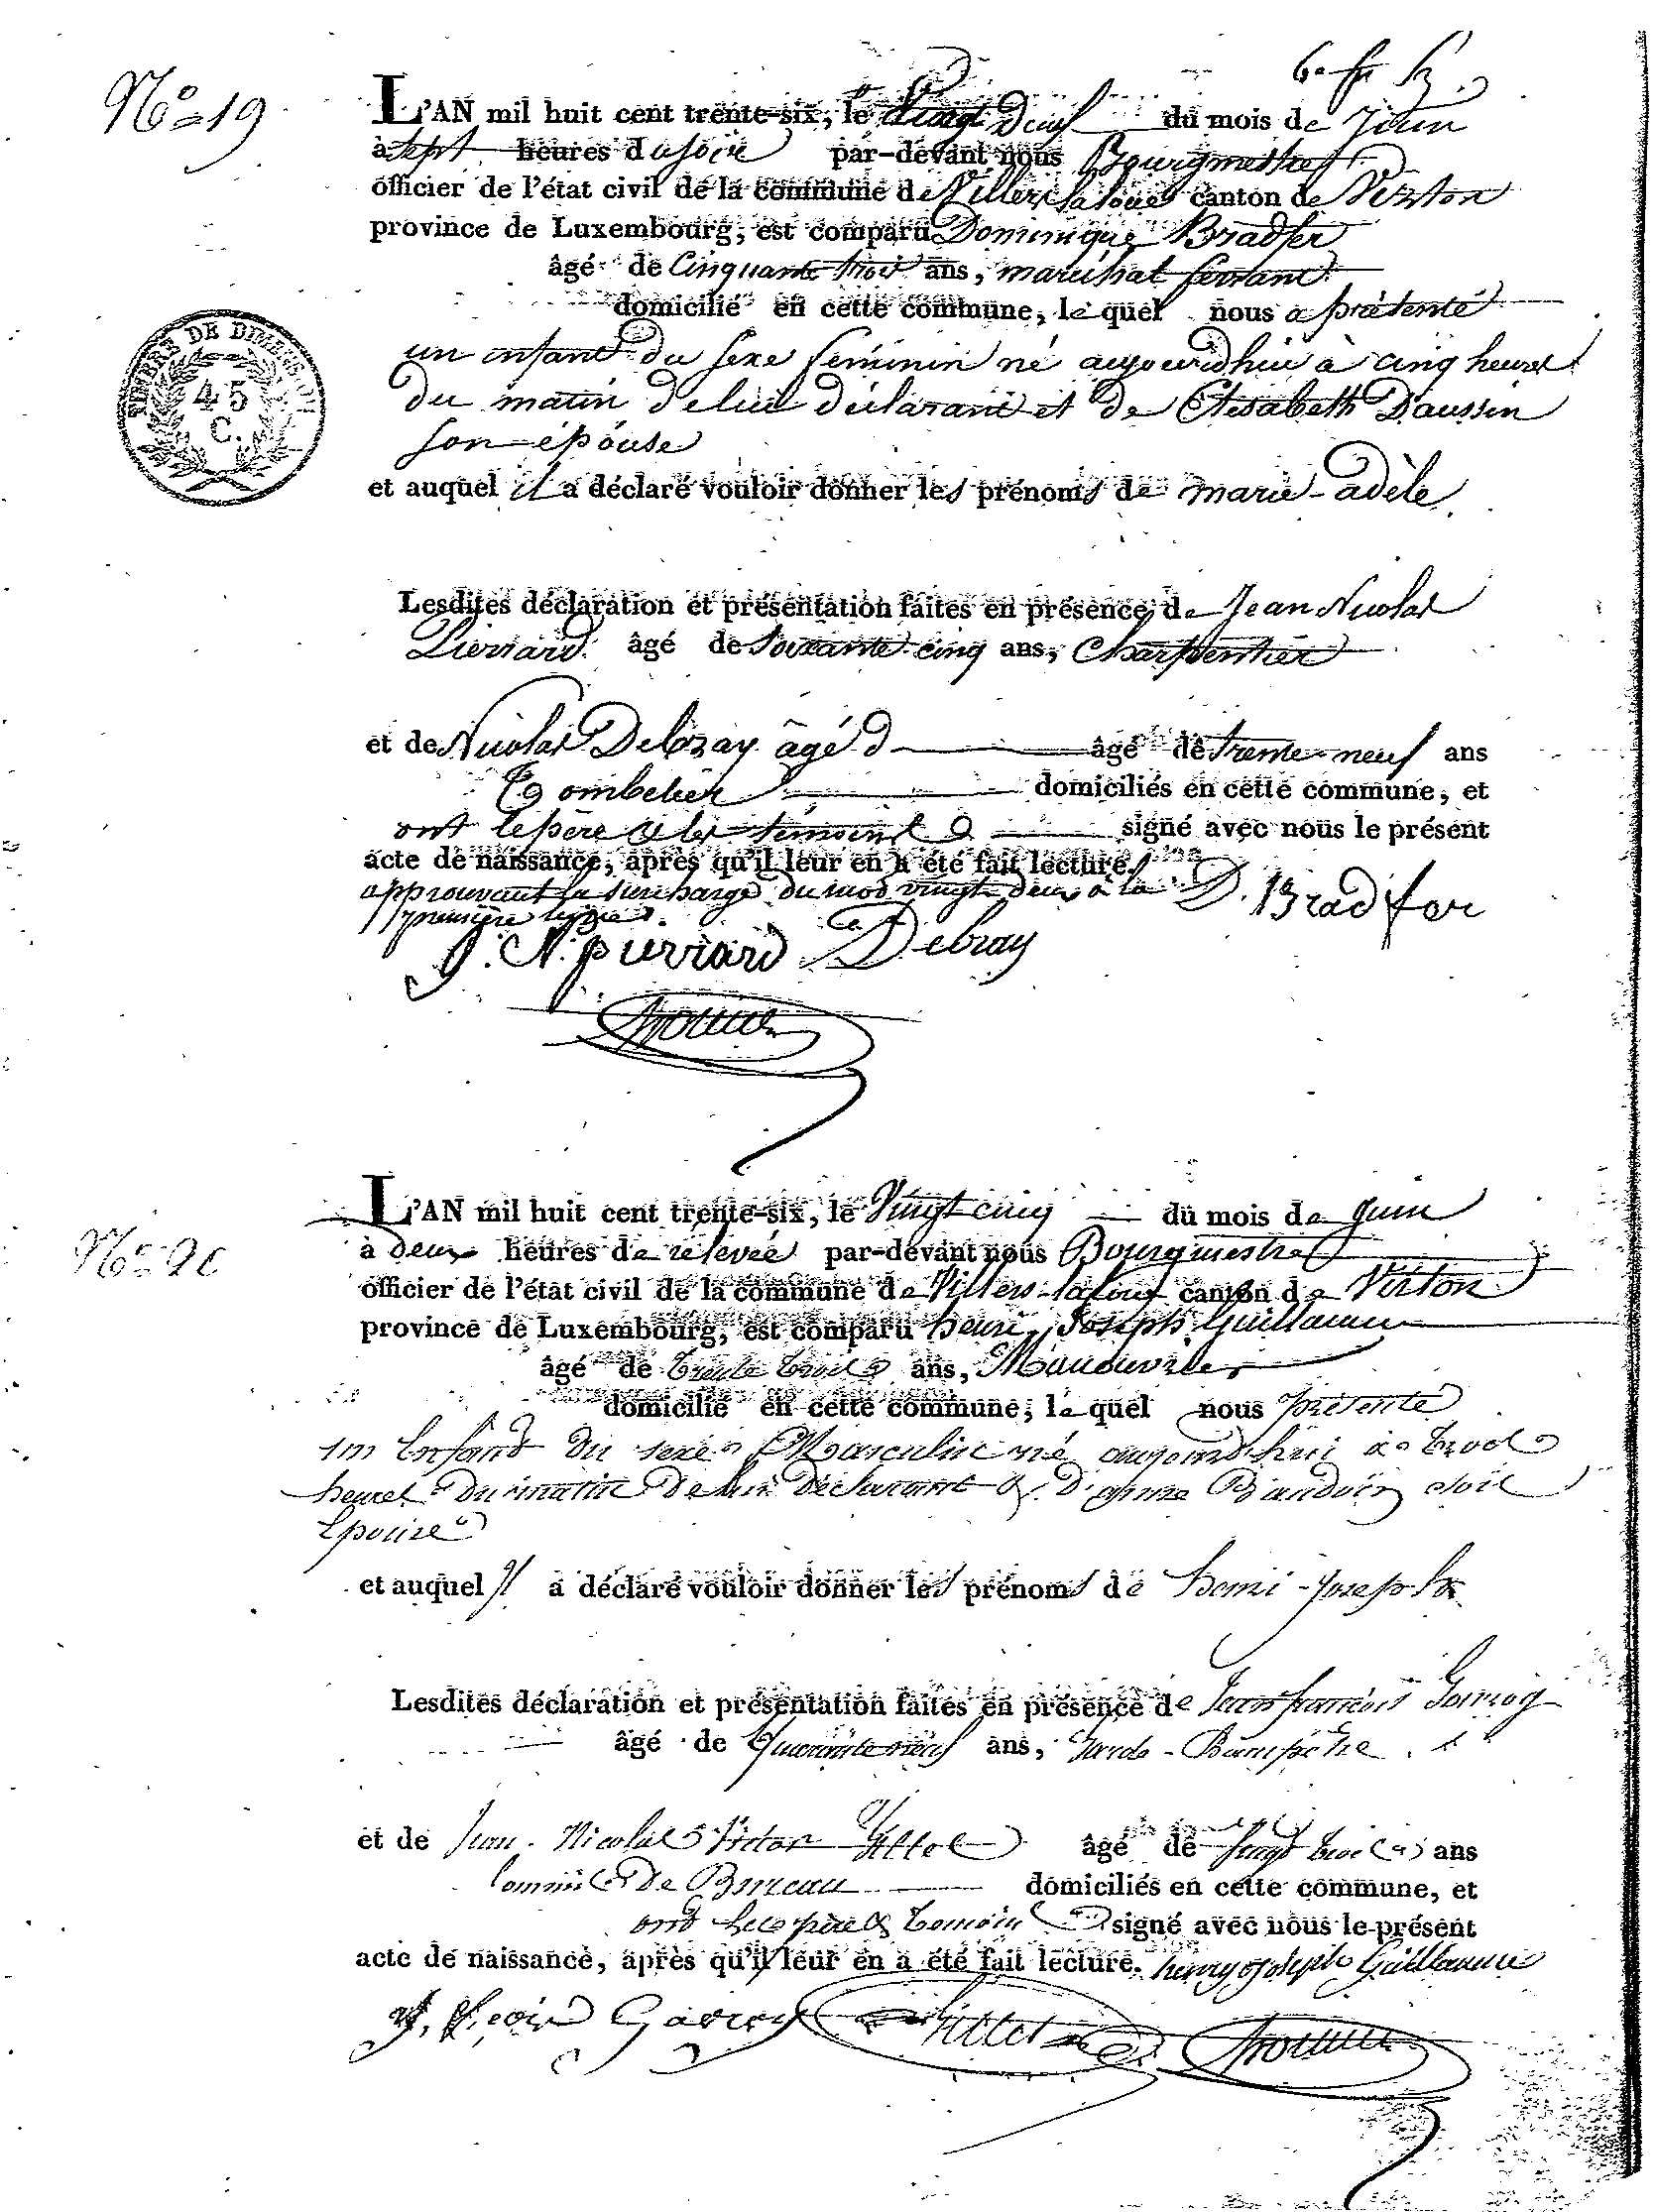 N° 19
L'AN mil huit cent trente-six, le vingt Deux du mois de Juin
à sept heures du soir par-devant nous Bourgmestre
officier de l'état civil de la commune de Villers laloue canton de Virton
province de Luxembourg, est comparu Dominique Bradfer
âgé de Cinquante trois ans, maréchal ferrant
domicilié en cette commune, le quel nous a présenté
TIMBRE DE DIMENSION
45
C.
un enfant du sexe féminin né aujourdhui à cinq heures
du matin de lui déclarant et de Elisabeth Daussin
son épouse
et auquel il a déclaré vouloir donner les prénoms de marie-adèle
Lesdites déclaration et présentation faites en présence de Jean Nicolas
Pierrard âgé de soixante cinq ans, Charpentier
et de Nicolas Debray âgé d âgé de trente-neuf ans
domiciliés en cette commune, et
ont le père & les témoins signé avec nous le présent
acte de naissance, après qu'il leur en a été fait lecture.
approuvant la surcharge du mot vingt deux à la
première ligne.
D. Bradfer
J. N. pierrard Debray
L'AN mil huit cent trente-six, le Vingt cinq du mois de Juin
N° 20
à deux heures de relevée par-devant nous Bourgmestre
officier de l'état civil de la commune de Villers-laloue canton de Virton
province de Luxembourg, est comparu henri Joseph Guillaume
âgé de trente trois ans, Manouvrier
domicilié en cette commune, le quel nous présenté
un Enfant du sexe Masculin né aujourd'hui à trois
heures du matin de lui Déclarant & D'anne Baudoin son
Epouse
et auquel il a déclaré vouloir donner les prénoms de henri-Joseph
Lesdites déclaration et présentation faites en présence de Jean françois
âgé de Quarante neuf ans, Garde-Champêtre
et de Jean Nicolas Victor âgé de vingt trois ans
Commis De Bureau domiciliés en cette commune, et
ont le père & témoin signé avec nous le présent
acte de naissance, après qu'il leur en a été fait lecture. henry Joseph Guillaume